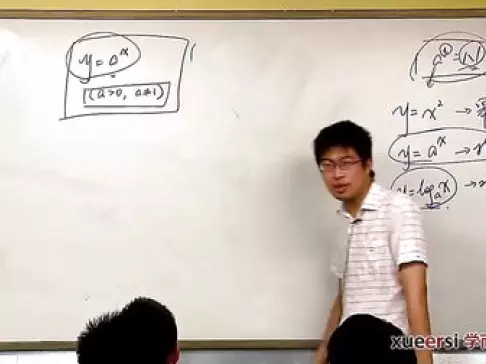 y=aˣ
(a>0, a≠1)
y=x² →
y=aˣ →
y=logₐx →
xueersi 学而